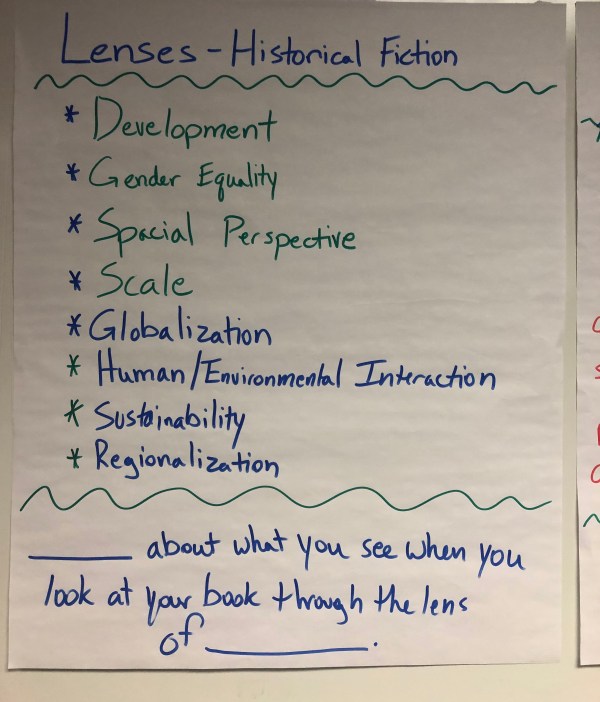 Lenses - Historical Fiction
* Development
* Gender Equality
* Spacial Perspective
* Scale
* Globalization
* Human/Environmental Interaction
* Sustainability
* Regionalization
______ about what you see when you
look at your book through the lens
of __________.